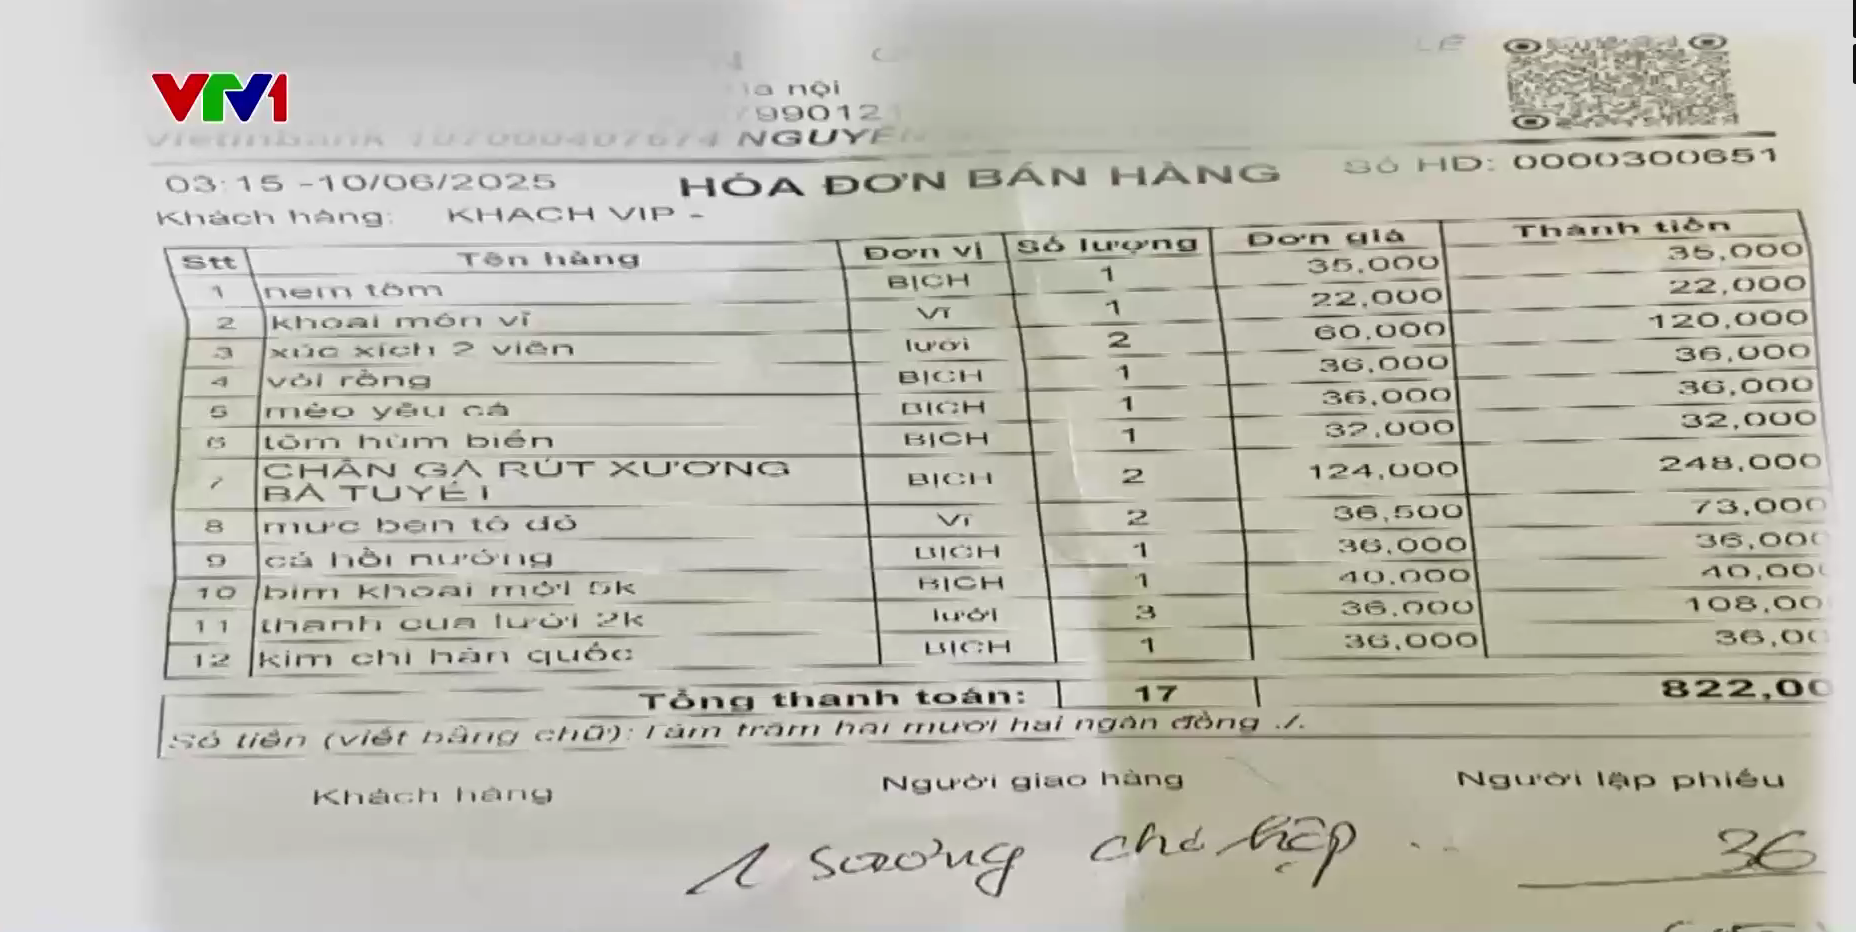 VTV1
nội
NGUYỄN
03:15 -10/06/2025 HÓA ĐƠN BÁN HÀNG Số HD: 0000300651
Khách hàng: KHACH VIP -
Stt Tên hàng Đơn vị Số lượng Đơn giá Thành tiền
1 nem tôm BỊCH 1 35,000 35,000
2 khoai môn vỉ Vỉ 1 22,000 22,000
3 xúc xích 2 viên lưới 2 60,000 120,000
4 vòi rồng BỊCH 1 36,000 36,000
5 mèo yêu cá BỊCH 1 36,000 36,000
6 tôm hùm biển BỊCH 1 32,000 32,000
7 CHÂN GÀ RÚT XƯƠNG BÀ TUYẾT BỊCH 2 124,000 248,000
8 mực ben tô đỏ Vỉ 2 36,500 73,000
9 cá hồi nướng BỊCH 1 36,000 36,000
10 bim khoai môi 5k BỊCH 1 40,000 40,00
11 thanh cua lưới 2k lưới 3 36,000 108,00
12 kim chi hàn quốc BỊCH 1 36,000 36,00
Tổng thanh toán: 17 822,00
Số tiền (viết bằng chữ): Tám trăm hai mươi hai ngàn đồng ./.
Khách hàng Người giao hàng Người lập phiếu
1 36